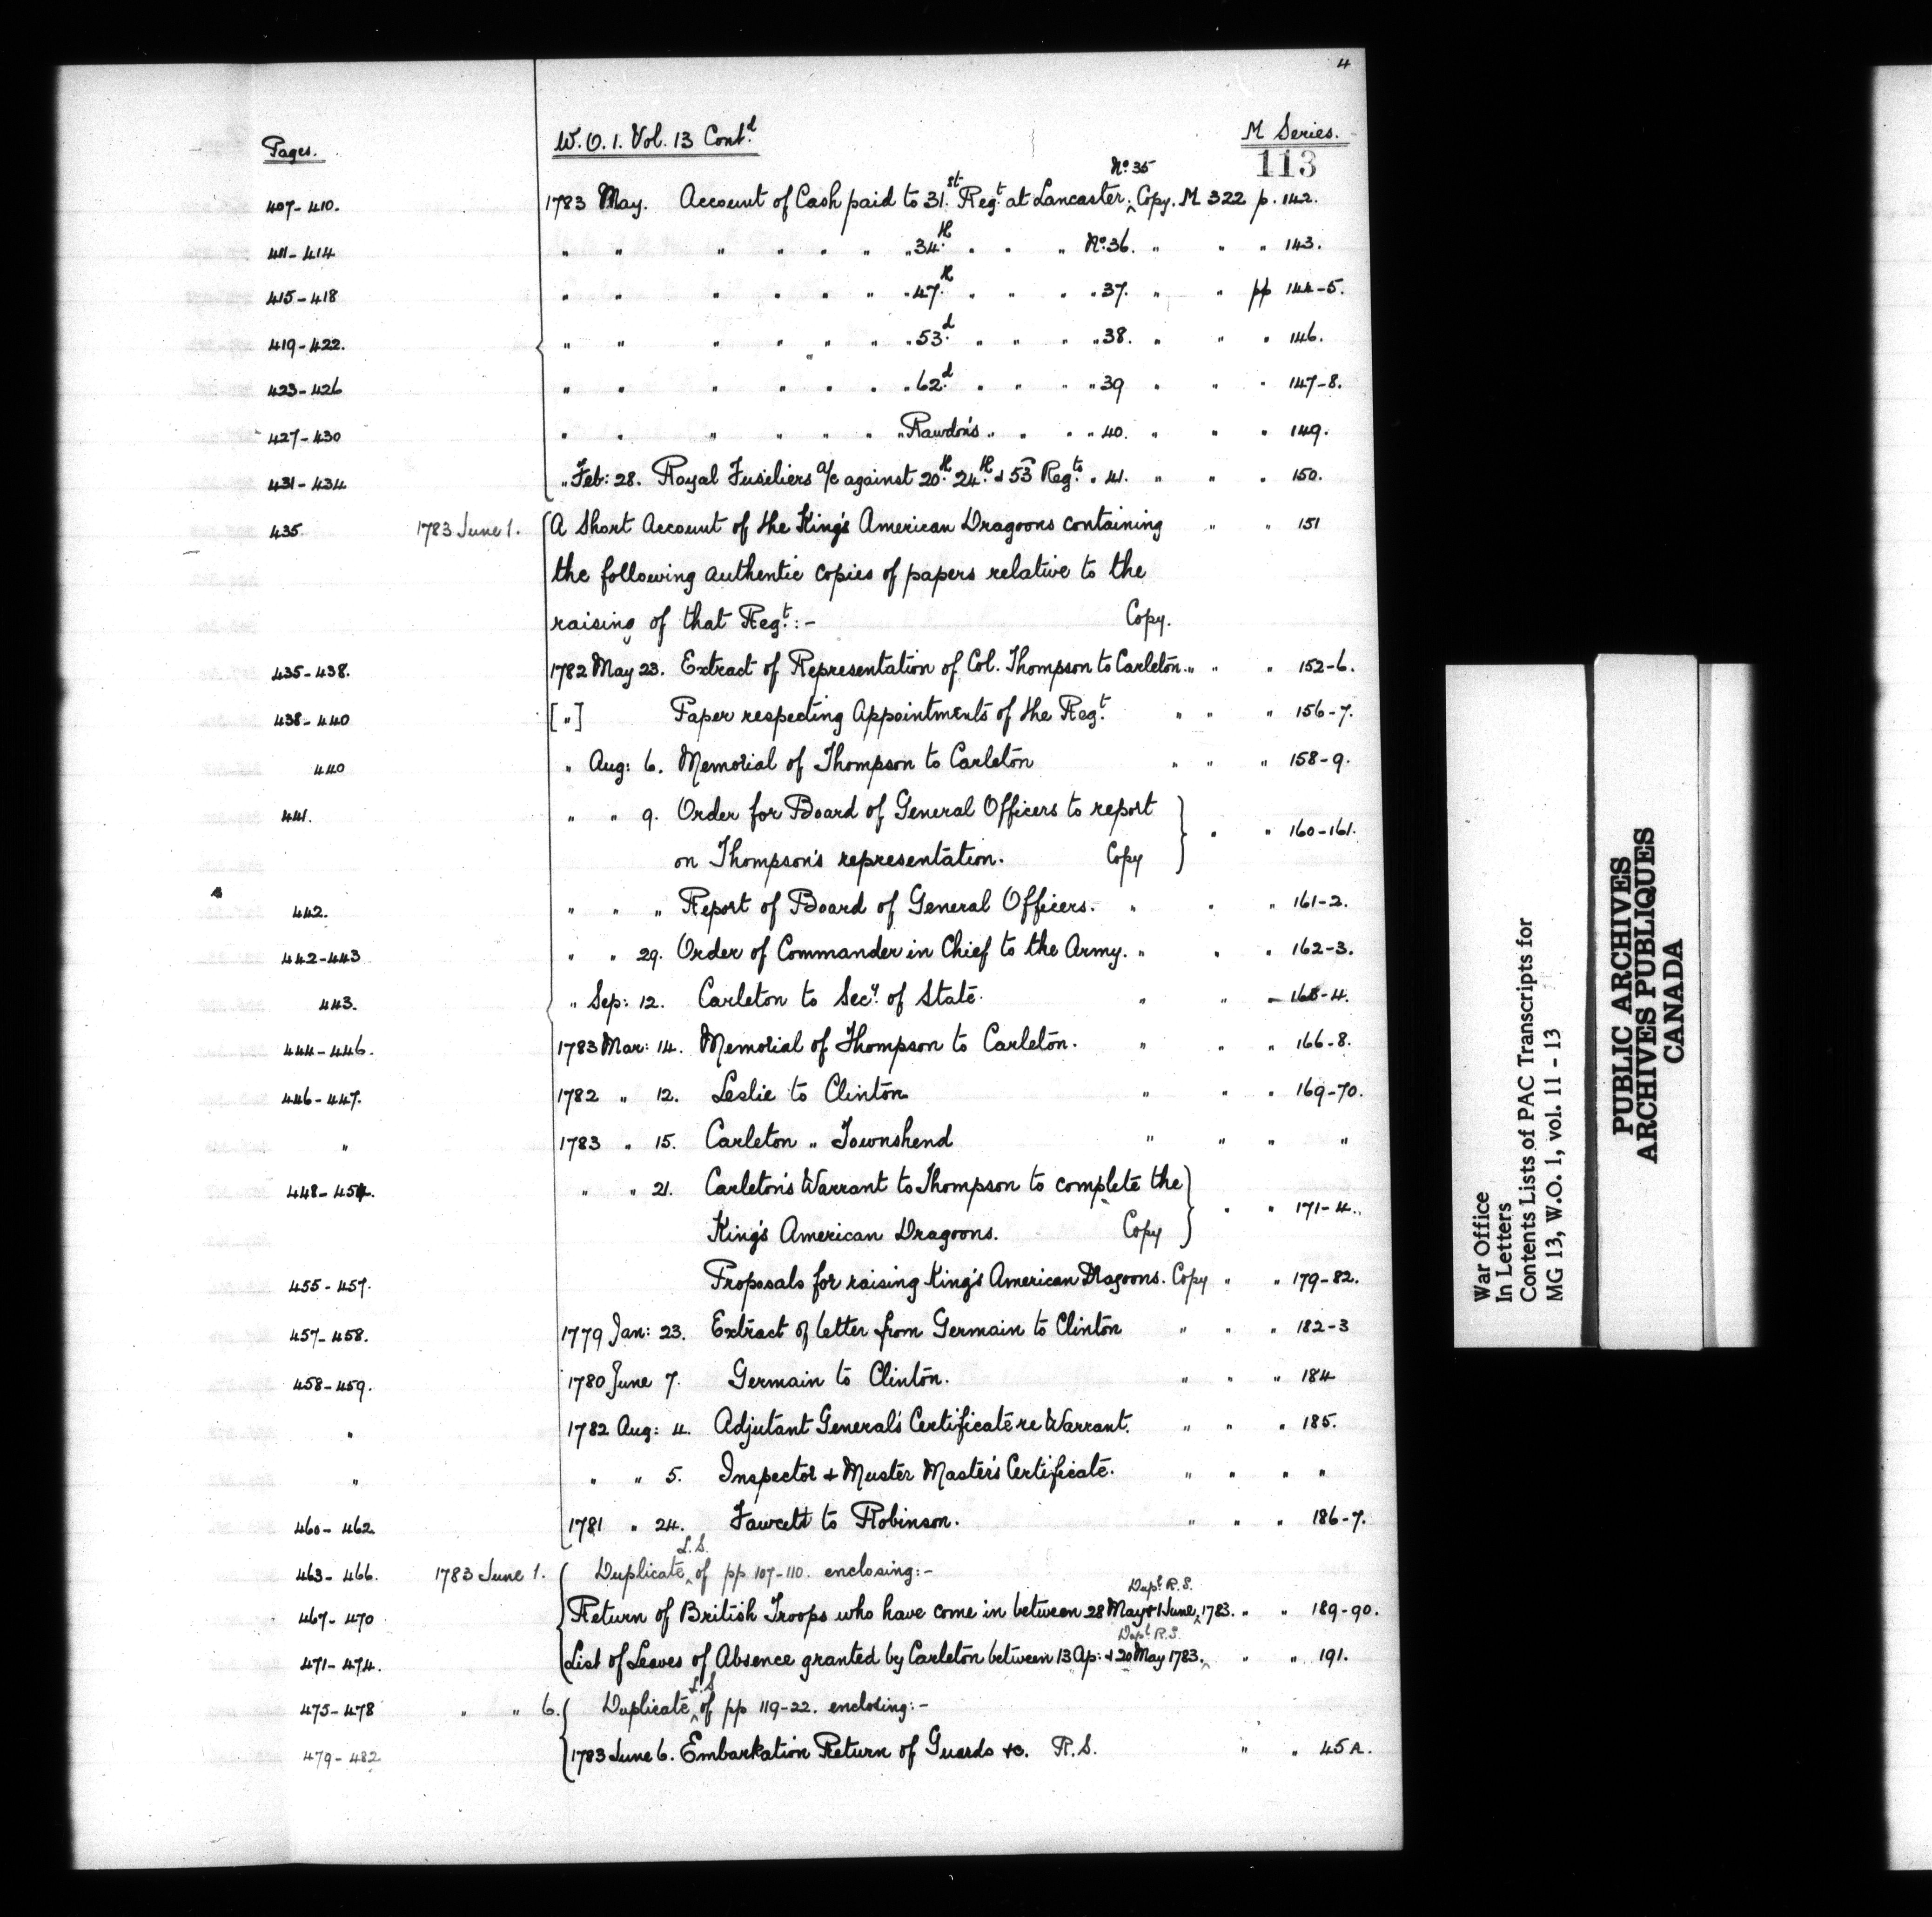 4
Pages. W. O. 1. Vol. 13 Contd M Series.
113
No 35
407-410. 1783 May. Account of Cash paid to 31st Regt at Lancaster. ^ Copy. M 322 p. 142.
411-414 " " " " " " " 34th " " " No 36. " " " 143.
415-418 " " " " " " " 47th " " " " 37. " " pp 144-5.
419-422. " " " " " " " 53d " " " " 38. " " " 146.
423-426 " " " " " " " 62d " " " " 39 " " " 147-8.
427-430 " " " " " " " Rawdon's " " " " 40. " " " 149.
431-434 " Feb: 28. Royal Fusiliers a/c against 20th 24th & 53d Regts " 41. " " " 150.
435 1783 June 1. A Short Account of the King's American Dragoons containing " " 151
the following authentic copies of papers relative to the
raising of that Regt:- Copy.
435-438. 1782 May 23. Extract of Representation of Col. Thompson to Carleton. " " " 152-6.
438-440 ["] Paper respecting Appointments of the Regt. " " " 156-7.
440 " Aug: 6. Memorial of Thompson to Carleton " " " 158-9.
441. " " 9. Order for Board of General Officers to report
on Thompson's representation. Copy } " " 160-161.
442. " " " Report of Board of General Officers. " " " 161-2.
442-443 " " 29. Order of Commander in Chief to the Army. " " " 162-3.
443. " Sep: 12. Carleton to Secy of State. " " 165-4.
444-446. 1783 Mar: 14. Memorial of Thompson to Carleton. " " " 166-8.
446-447. 1782 " 12. Leslie to Clinton " " " 169-70.
" 1783 " 15. Carleton " Townshend " " " "
448-454. " " 21. Carleton's Warrant to Thompson to complete the
King's American Dragoons. Copy } " " 171-4.
455-457. Proposals for raising King's American Dragoons. Copy " " 179-82.
457-458. 1779 Jan: 23. Extract of letter from Germain to Clinton " " " 182-3
458-459. 1780 June 7. Germain to Clinton. " " " 184
" 1782 Aug: 4. Adjutant General's Certificate re Warrant. " " " 185.
" " " 5. Inspector & Muster Master's Certificate. " " " "
460-462. 1781 " 24. Fawcett to Robinson. " " " 186-7.
L.S.
463-466. 1783 June 1. Duplicate ^ of pp 107-110. enclosing:-
Dupt R.S.
467-470 Return of British Troops who have come in between 28 May & 1 June ^ 1783. " " 189-90.
Dupt R.S.
471-474. List of Leaves of Absence granted by Carleton between 13 Ap: & 20 May 1783. ^ " " 191.
L.S
475-478 " " 6. Duplicate ^ of pp 119-22. enclosing:-
479-482 1783 June 6. Embarkation Return of Guards &c. R.S. " " 45 A.
War Office
In Letters
Contents Lists of PAC Transcripts for
MG 13, W.O. 1, vol. 11 - 13
PUBLIC ARCHIVES
ARCHIVES PUBLIQUES
CANADA